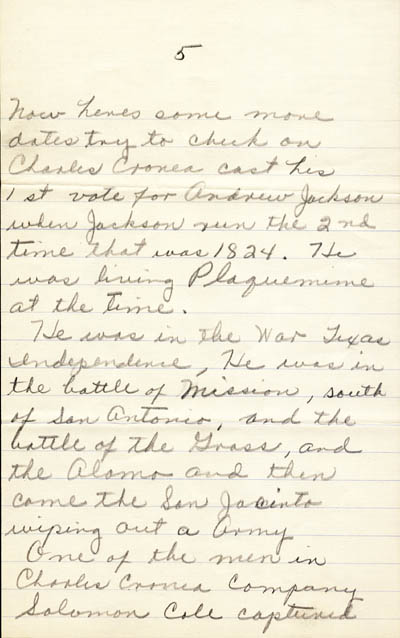 5
Now heres some more
dates try to check on
Charles Cronea cast his
1st vote for Andrew Jackson
when Jackson run the 2nd
time that was 1824. He
was living Plaquemime
at the time.
He was in the War Texas
Independence, He was in
the battle of Mission, south
of San Antonio, and the
battle of the Grass, and
the Alamo and then
come the San Jacinto
wiping out a Army
One of the men in
Charles Cronea Company
Solomon Cole captured